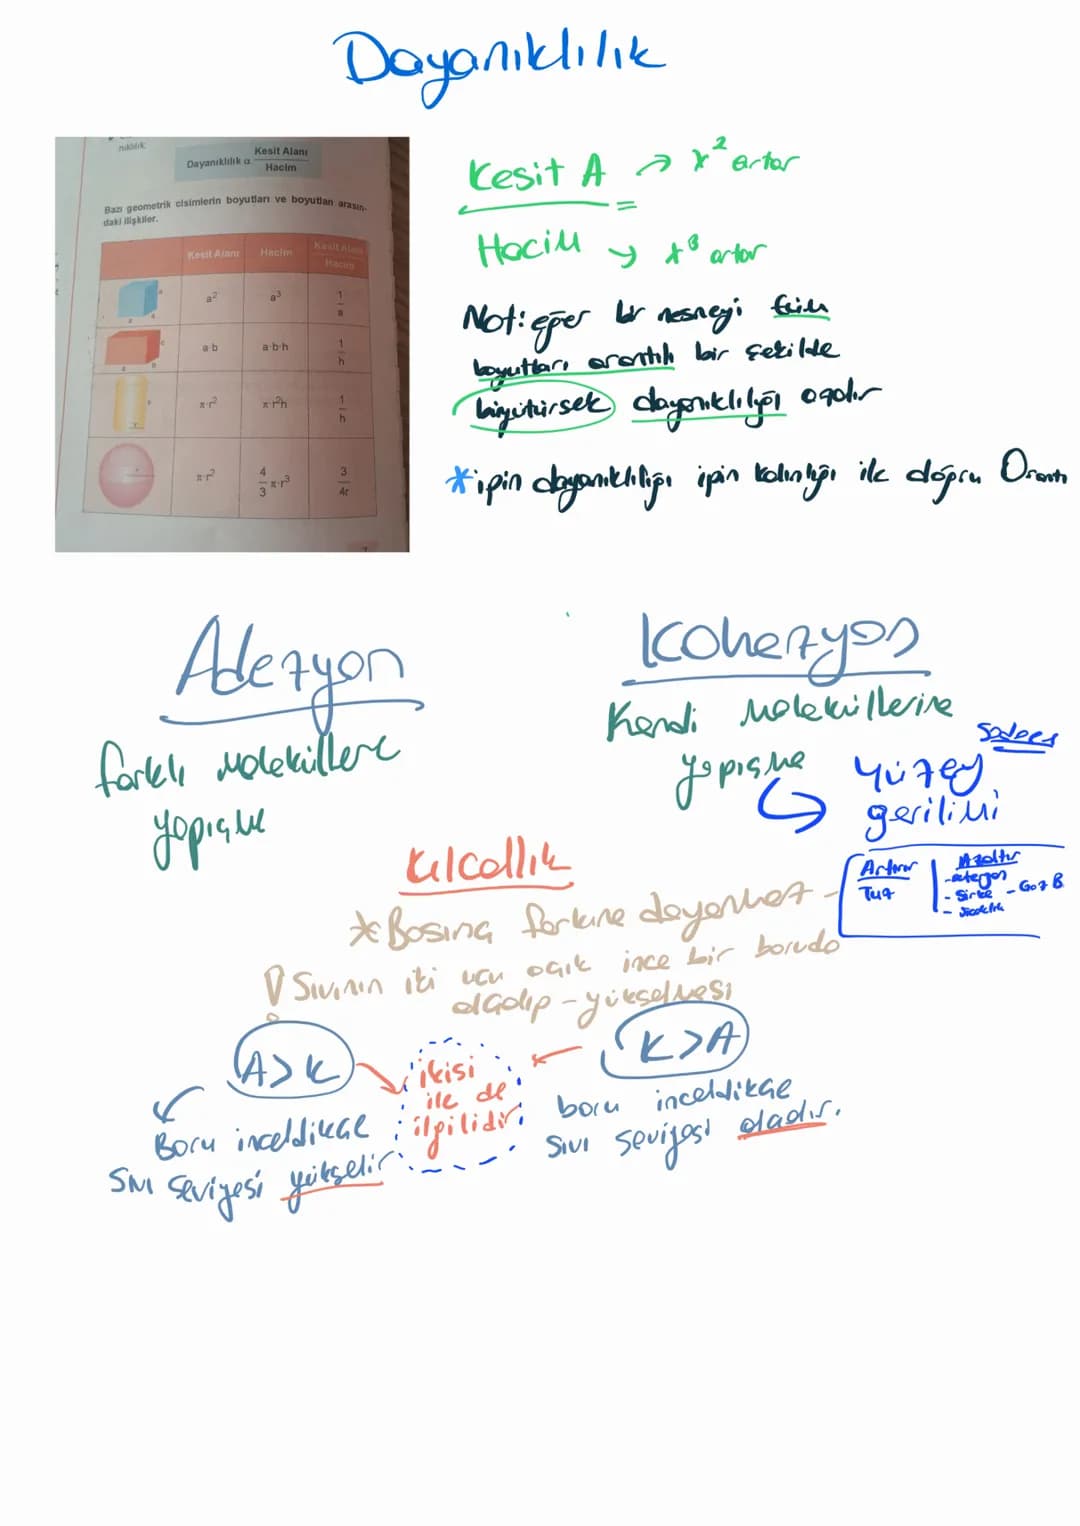 Dayanıklılık
nıklılık
Dayanıklılık α Kesit Alanı
Hacim
Bazı geometrik cisimlerin boyutları ve boyutları arasın-
daki ilişkiler.
Kesit Alanı Hacim Kesit Alanı
Hacim
a² a³ 1
a
a·b a·b·h 1
h
π·r² π·r²h 1
h
π·r² 4
3 π·r³ 3
4r
Kesit A → x² artar
Hacim → x³ artar
Not: eğer bir nesneyi tüm
boyutları orantılı bir şekilde
büyütürsek dayanıklılığı azalır
*ipin dayanıklılığı ipin kalınlığı ile doğru Orantı
Adezyon
farklı moleküllere
yapışma
Kohezyon
Kendi moleküllerine
yapışma
Sadece
yüzey
gerilimi
Artırır
Tuz
Azaltır
- Sirke
- Sıcaklık
Kılcallık
*Basınç farkına dayanmaz -
Sıvının iki ucu açık ince bir boruda
alçalıp - yükselmesi
A>K
Boru inceldikçe
Sıvı seviyesi yükselir
ikisi
ile de
ilgilidir
K>A
boru inceldikçe
Sıvı seviyesi